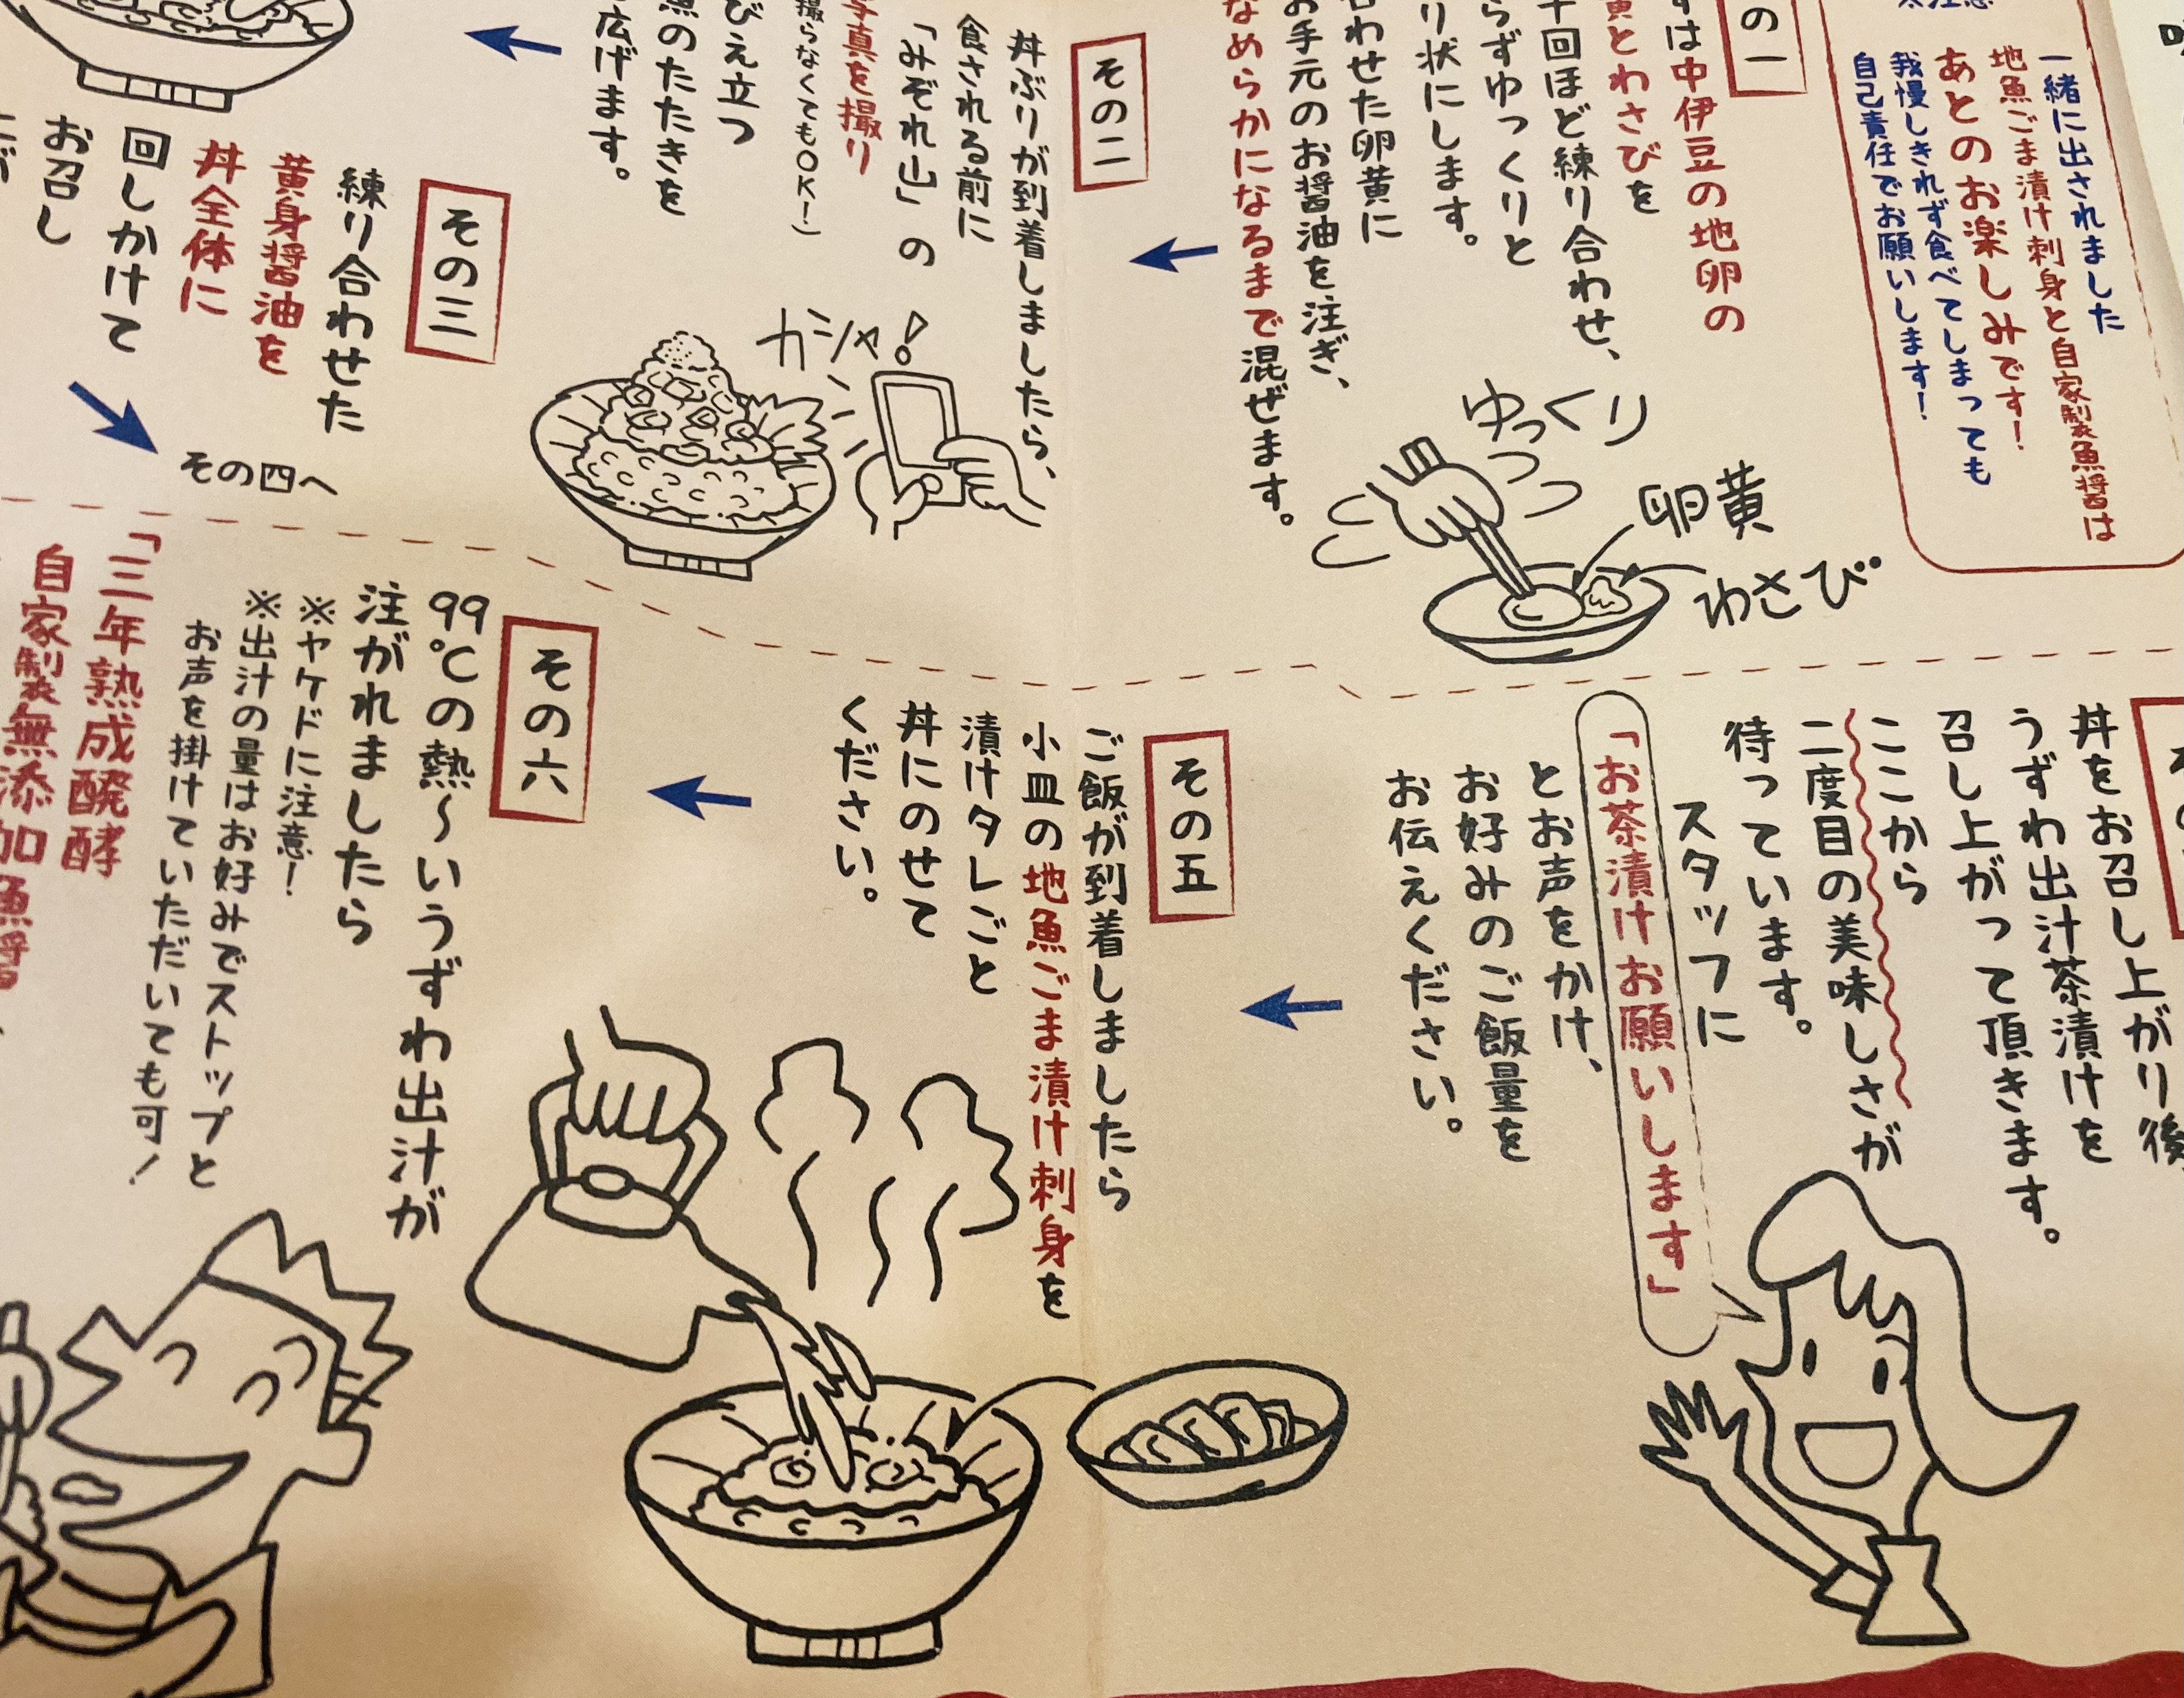 一緒に出されました
地魚ごま漬け刺身と自家製魚醤は
あとのお楽しみです!
我慢しきれず食べてしまっても
自己責任でお願いします!
の一
ずは中伊豆の地卵の
黄とわさびを
十回ほど練り合わせ、
らずゆっくりと
り状にします。
合わせた卵黄に
お手元のお醤油を注ぎ、
なめらかになるまで混ぜます。
ゆっくり
卵黄
わさび
その二
丼ぶりが到着しましたら、
食される前に
「みぞれ山」の
写真を撮り
撮らなくてもOK!)
びえ立つ
魚のたたきを
広げます。
ガシャ!
その三
練り合わせた
黄身醤油を
丼全体に
回しかけて
お召し
その四へ
丼をお召し上がり後
うずわ出汁茶漬けを
召し上がって頂きます。
ここから
二度目の美味しさが
待っています。
スタッフに
「お茶漬けお願いします」
とお声をかけ、
お好みのご飯量を
お伝えください。
その五
ご飯が到着しましたら
小皿の地魚ごま漬け刺身を
漬けタレごと
丼にのせて
ください。
その六
99℃の熱〜いうずわ出汁が
注がれましたら
※ヤケドに注意!
※出汁の量はお好みでストップと
お声を掛けていただいても可!
「三年熟成醗酵
自家製無添加魚醤